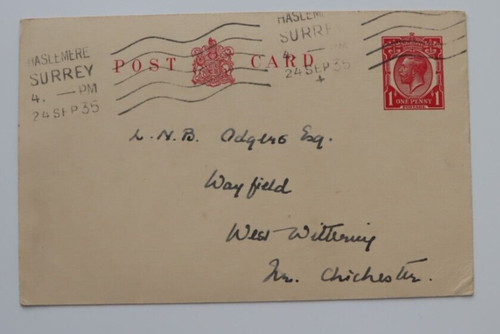 HASLEMERE
SURREY
4. — PM
24 SEP 35
POST CARD
HASLEM
SURRE
4. — PM
24 SEP 35
+
1 ONE PENNY 1
L. N. B. Odgers Esq.
Wayfield
West Wittering
Nr. Chichester.